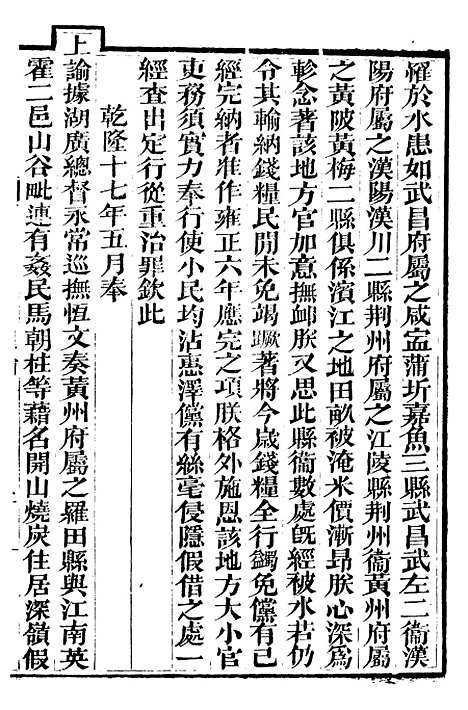 罹於水患如武昌府屬之咸寍蒲圻嘉魚三縣武昌武左二衞漢
陽府屬之漢陽漢川二縣荆州府屬之江陵縣荆州衞黃州府屬
之黃陂黃梅二縣俱係濱江之地田畝被淹米價漸昂朕心深爲
軫念著該地方官加意撫卹朕又思此縣衞數處旣經被水若仍
令其輸納錢糧民閒未免竭蹶著將今歲錢糧全行蠲免儻有已
經完納者准作雍正六年應完之項朕格外施恩該地方大小官
吏務須實力奉行使小民均沾惠澤儻有絲毫侵隱假借之處一
經查出定行從重治罪欽此
乾隆十七年五月奉
上諭據湖廣總督永常巡撫恆文奏黃州府屬之羅田縣與江南英
霍二邑山谷毗連有姦民馬朝柱等藉名開山燒炭住居深嶺假